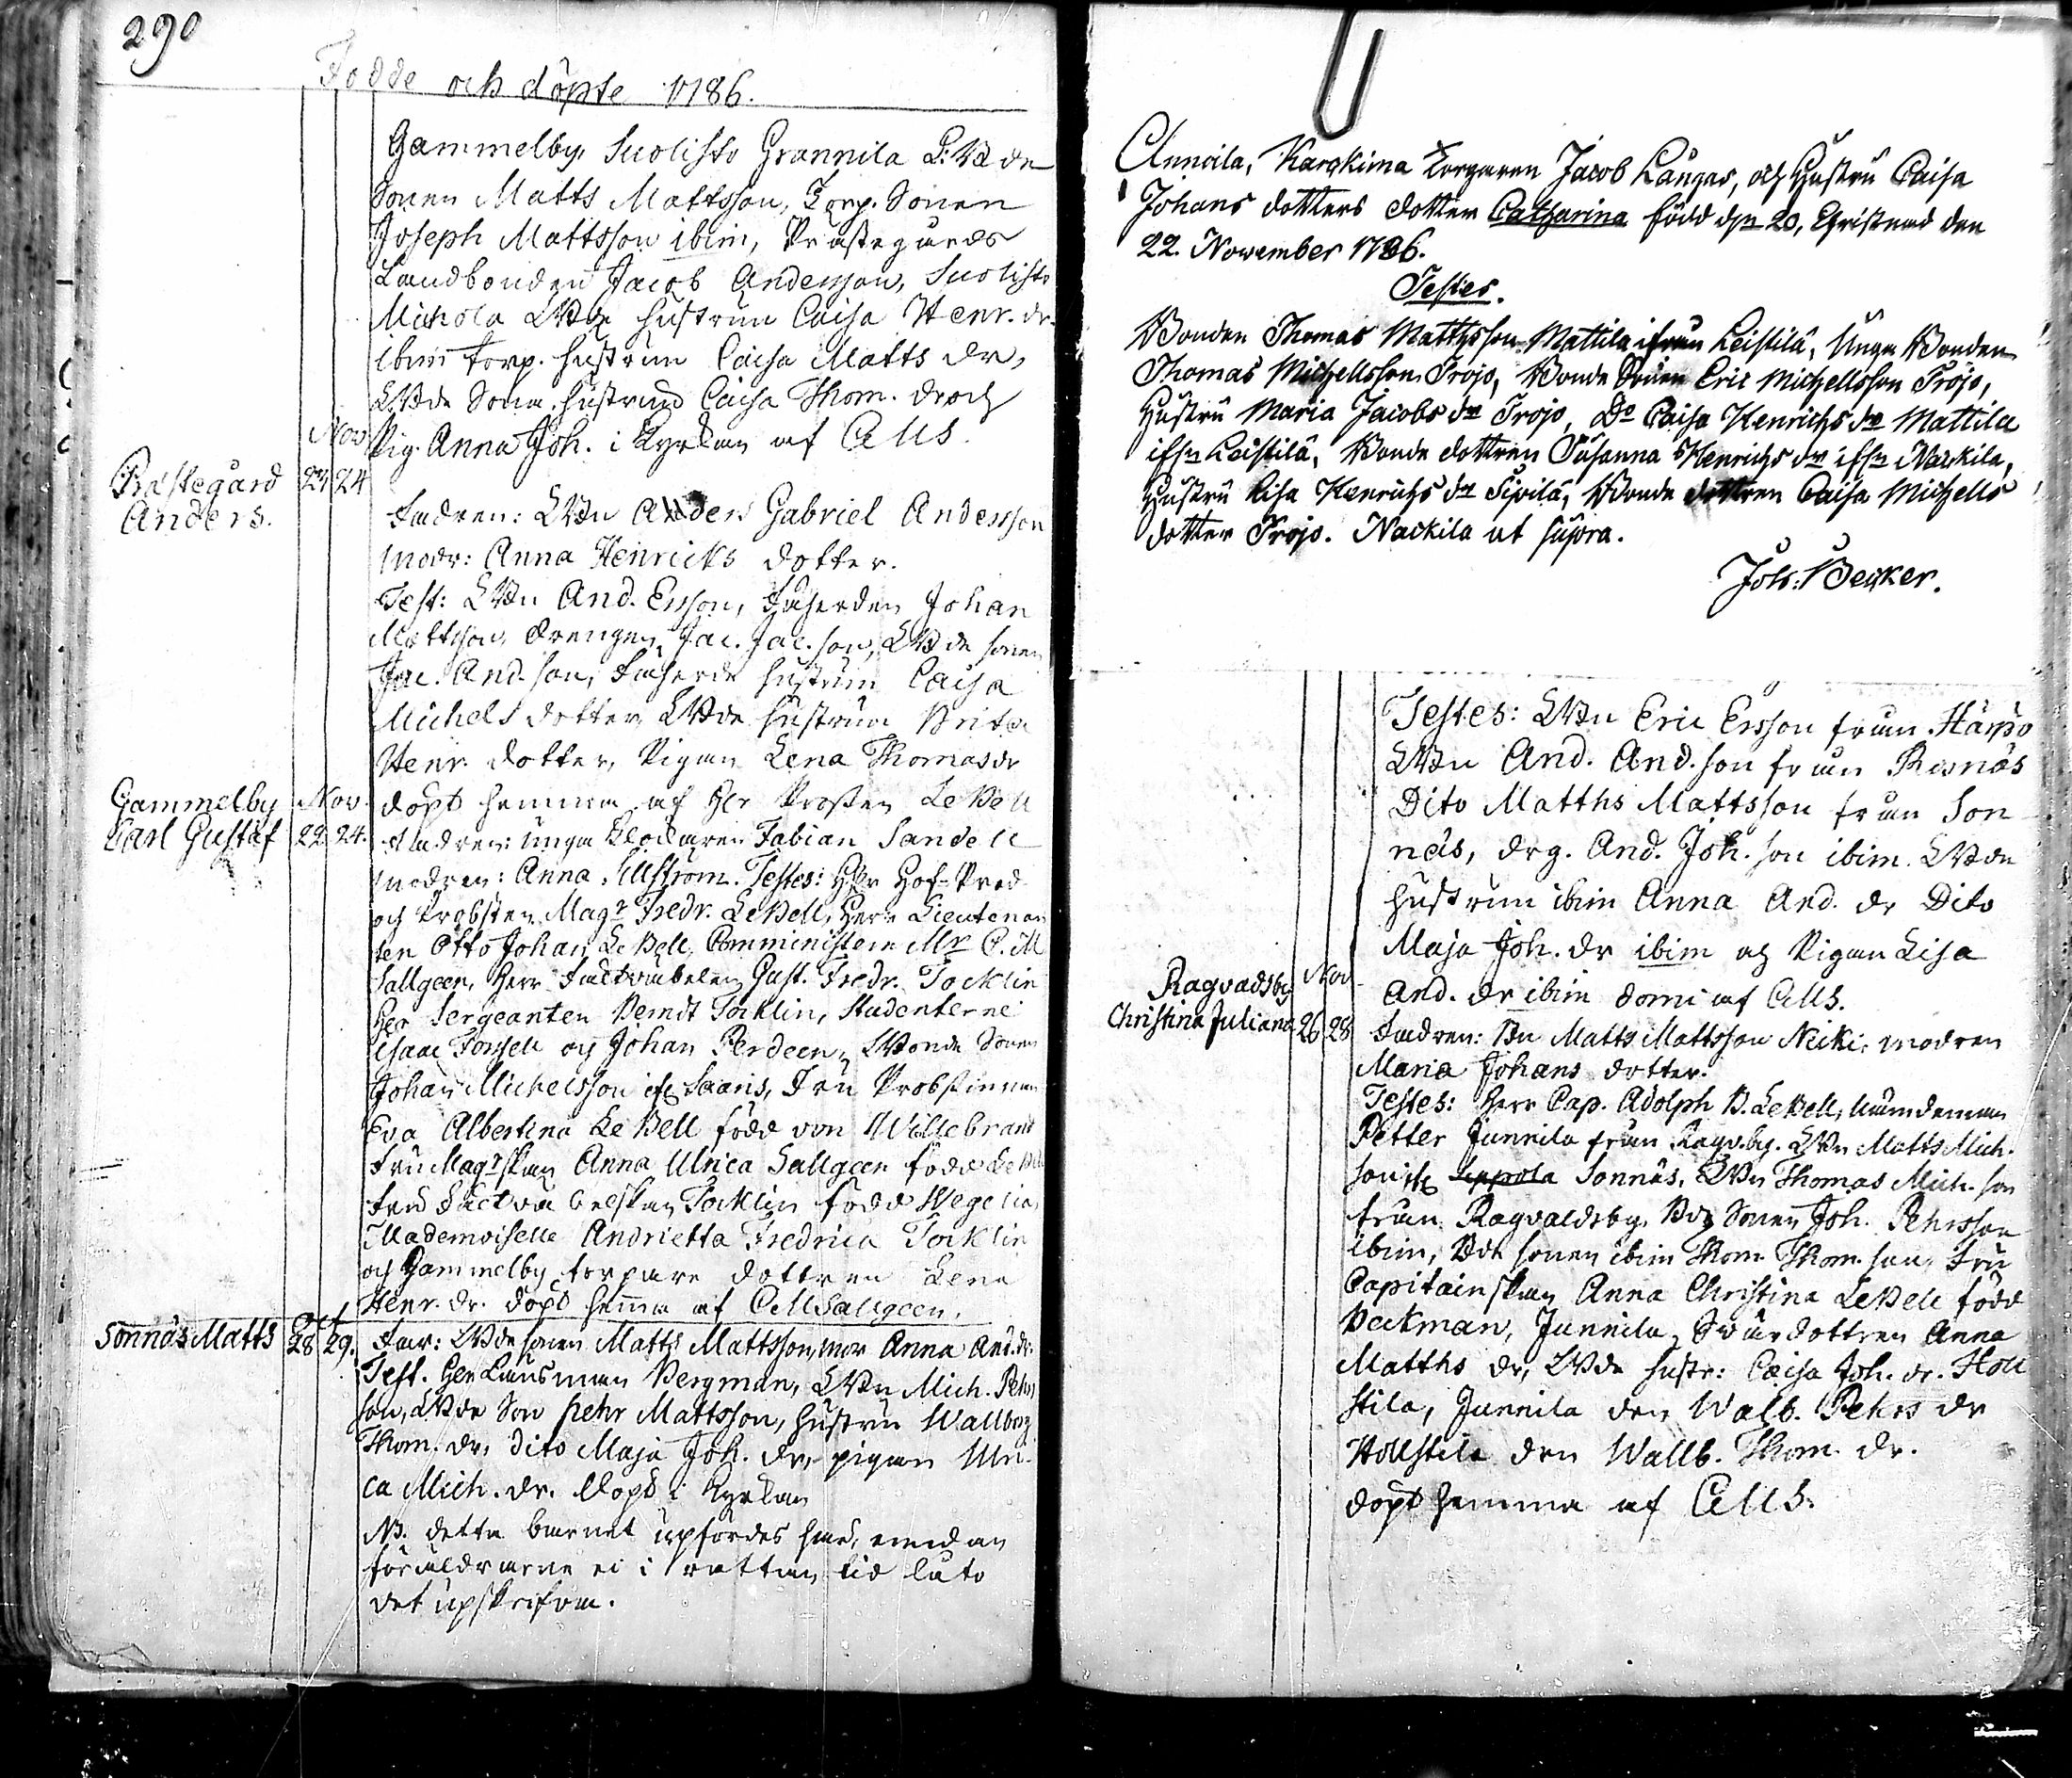 290
Födde och döpte 1786.
Gammelby, Suolisto Grannila L:Bde
Sonen Matts Mattsson, Torp. Sonen
Joseph Mattsson ibim, Prästegårds
Landbonden Jacob Andersson, Suolisto
Mickola LBde hustrun Caisa Henr. dr.
ibim torp. hustrun Caisa Matts dr,
LBde Sone hustrun Caisa Thom. dr och
Pig. Anna Joh. i Kyrkan af CMS.
Nov
Prästegård 24
Anders.
Fadren: LBn Gabriel Andersson
modr: Anna Henricks dotter.
Test: LBn And. Ersson, Johan
Mattsson, drengen Jac. Jac.son, LBde sonen
Jac. And.son, hustrun Caisa
Michels dotter, LBde hustrun Brita
Henr. dotter, Pigan Lena Thomasdr
döpt hemma af Hr Prosten LeBell
Gammelby Nov.
Carl Gustaf 22 24.
Fadren: unga Klockaren Fabian Sandell
modren: Anna Sellström. Testes: Herr Hof-Pred.
och Probsten Magr Fredr. LeBell, Herr Lieutenan
ten Otto Johan LeBell, Comministern Mr C. M
Sallgeen, Herr Gust. Fredr. Tocklin
Herr Sergeanten Berndt Tocklin, Studenterne
Isaac Forssell och Johan Perdeen, LBonde Sonen
Johan Michelsson ifr. Saaris, Fru Probstinnan
Eva Albertina LeBell född von Willebrand
Fru Magrskan Anna Ulrica Sallgeen född LeBell
Fru Tocklin född Wegelia
Mademoiselle Andrietta Fredrica Tocklin
och Gammelby torpare dottren Lena
Henr. dr. döpt hemma af CMSallgeen.
Oct
Sonnäs Matts 28 29.
Far: LBde sonen Matts Mattsson, mor Anna And.dr.
Test. Herr Länsman Bergman, LBn Mich. Pehrs
son, LBde Son Pehr Mattsson, hustru Wallborg
Thom. dr, Dito Maja Joh. dr, pigan Ulri
ca Mich. dr. Döpt i Kyrkan
NB. detta barnet upfördes här, emedan
föräldrarne ei i rättan tid låto
det upskrifva.
Annoila, Karckima Torparen Jacob Långas, och Hustru Caisa
Johans dotters dotter Catharina född d/n 20, Christnad den
22. November 1786.
Testes.
Bonden Thomas Matthsson Mattila ifrån Leistilä, Unga Bonden
Thomas Michellsson Trojo, Bonde Sonen Eric Michellsson Trojo,
Hustru Maria Jacobs dr Trojo, Do Caisa Henrichs dr Mattila
ifrn Leistilä, Bonde dottren Susanna Henrichs dr ifrn Nackila,
Hustru Lisa Henrichs dr Sipilä, Bonde dottren Caisa Michells
dotter Trojo. Nackila ut supra.
Joh: Becker.
Testes: LBn Eric Ersson från Härpö
LBn And. And.son från Resnäs
Dito Matths Mattsson från Son
näs, drg. And. Joh.son ibim. LBde
hustrun ibim Anna And. dr Dito
Maja Joh. dr ibim och Pigan Lisa
And. dr ibim domi af CMS.
Ragvadsby Nov
Christina Juliana 26 28
Fadren: Bn Matts Mattsson Neiki, modren
Maria Johans dotter.
Testes: Herr Cap. Adolph B. LeBell, Nämdeman
Petter Junnila från Ragv.by. LBn Matts Mich.
son ifr. Seppola Sonnäs, LBn Thomas Mich.son
från Ragvaldsby, Bde Sonen Joh. Pehrsson
ibim, Bde sonen ibim Thom. Thom.son, Fru
Capitainskan Anna Christina LeBell född
Beckman, Junnila Svärdottren Anna
Matths dr, LBde hustr: Caisa Joh. dr. Holl
stila, Junnila dr Walb. Pehrs dr
Hollstila Wallb. Thom. dr.
döpt hemma af CMS.